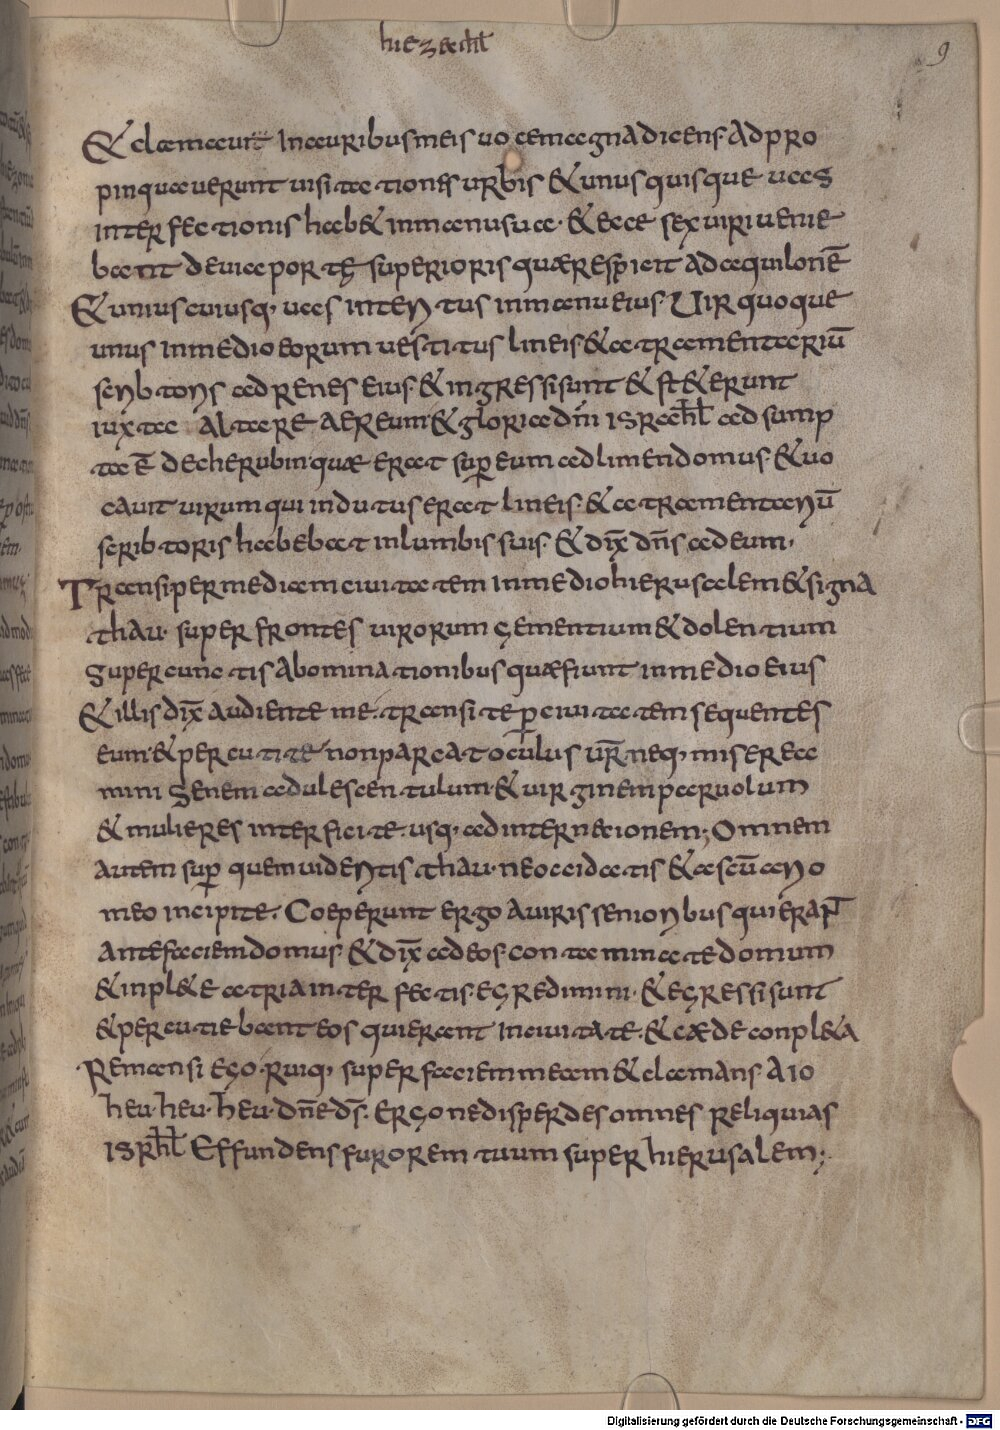 hiezechl
9
& clamavit In auribus meis vocem magna dicens. Adpro
pinquaverunt visitationes urbis & unusquisque vas
interfectionis hab& in manu sua. & ecce sex viri venie
bant de via portę superioris quæ respicit ad aquilonē
& uniuscuiusq; vas interitus in manu eius Vir quoque
unus in medio eorum vestitus lineis & atramentariū
scribtoris ad renes eius. & ingressi sunt & st&erunt
iuxta Altare Aereum. & gloria dñi israhl adsump
ta ē de cherubin. quæ erat super eum ad limen domus. & vo
cavit virum qui indutus erat lineis. & atramentariū
scribtoris habebat in lumbis suis. & dix̄ dñs ad eum.
Transi per mediam civitatem in medio hierusalem & signa
thau. super frontes virorum gementium & dolentium
super cunctis Abominationibus quæ fiunt in medio eius
& illis dix̄ Audiente me. transite p civitatem sequentes
eum. & percutite non parcat oculus vr̄ neq; miserea
mini Senem adulescentulum. & virginem parvolum
& mulieres interficite. usq; ad internecionem; Omnem
autem sup quem videritis thau. ne occidatis & a scūario
meo incipite. Coeperunt ergo Aviris senioribus qui erant
Ante faciem domus. & dix̄ ad eos. contaminate domum
& inpl&e atria interfectis. Egredimini. & Egressi sunt
& percutiebant eos qui erant In civitate. & cæde conpl&a
Remansi Ego. Ruiq; super faciem meam & clamans Aio
heu. heu. heu. dñe ds̄. Ergo ne disperdes omnes Reliquias
isrhl Effundens furorem tuum super hierusalem;
Digitalisierung gefördert durch die Deutsche Forschungsgemeinschaft - DFG